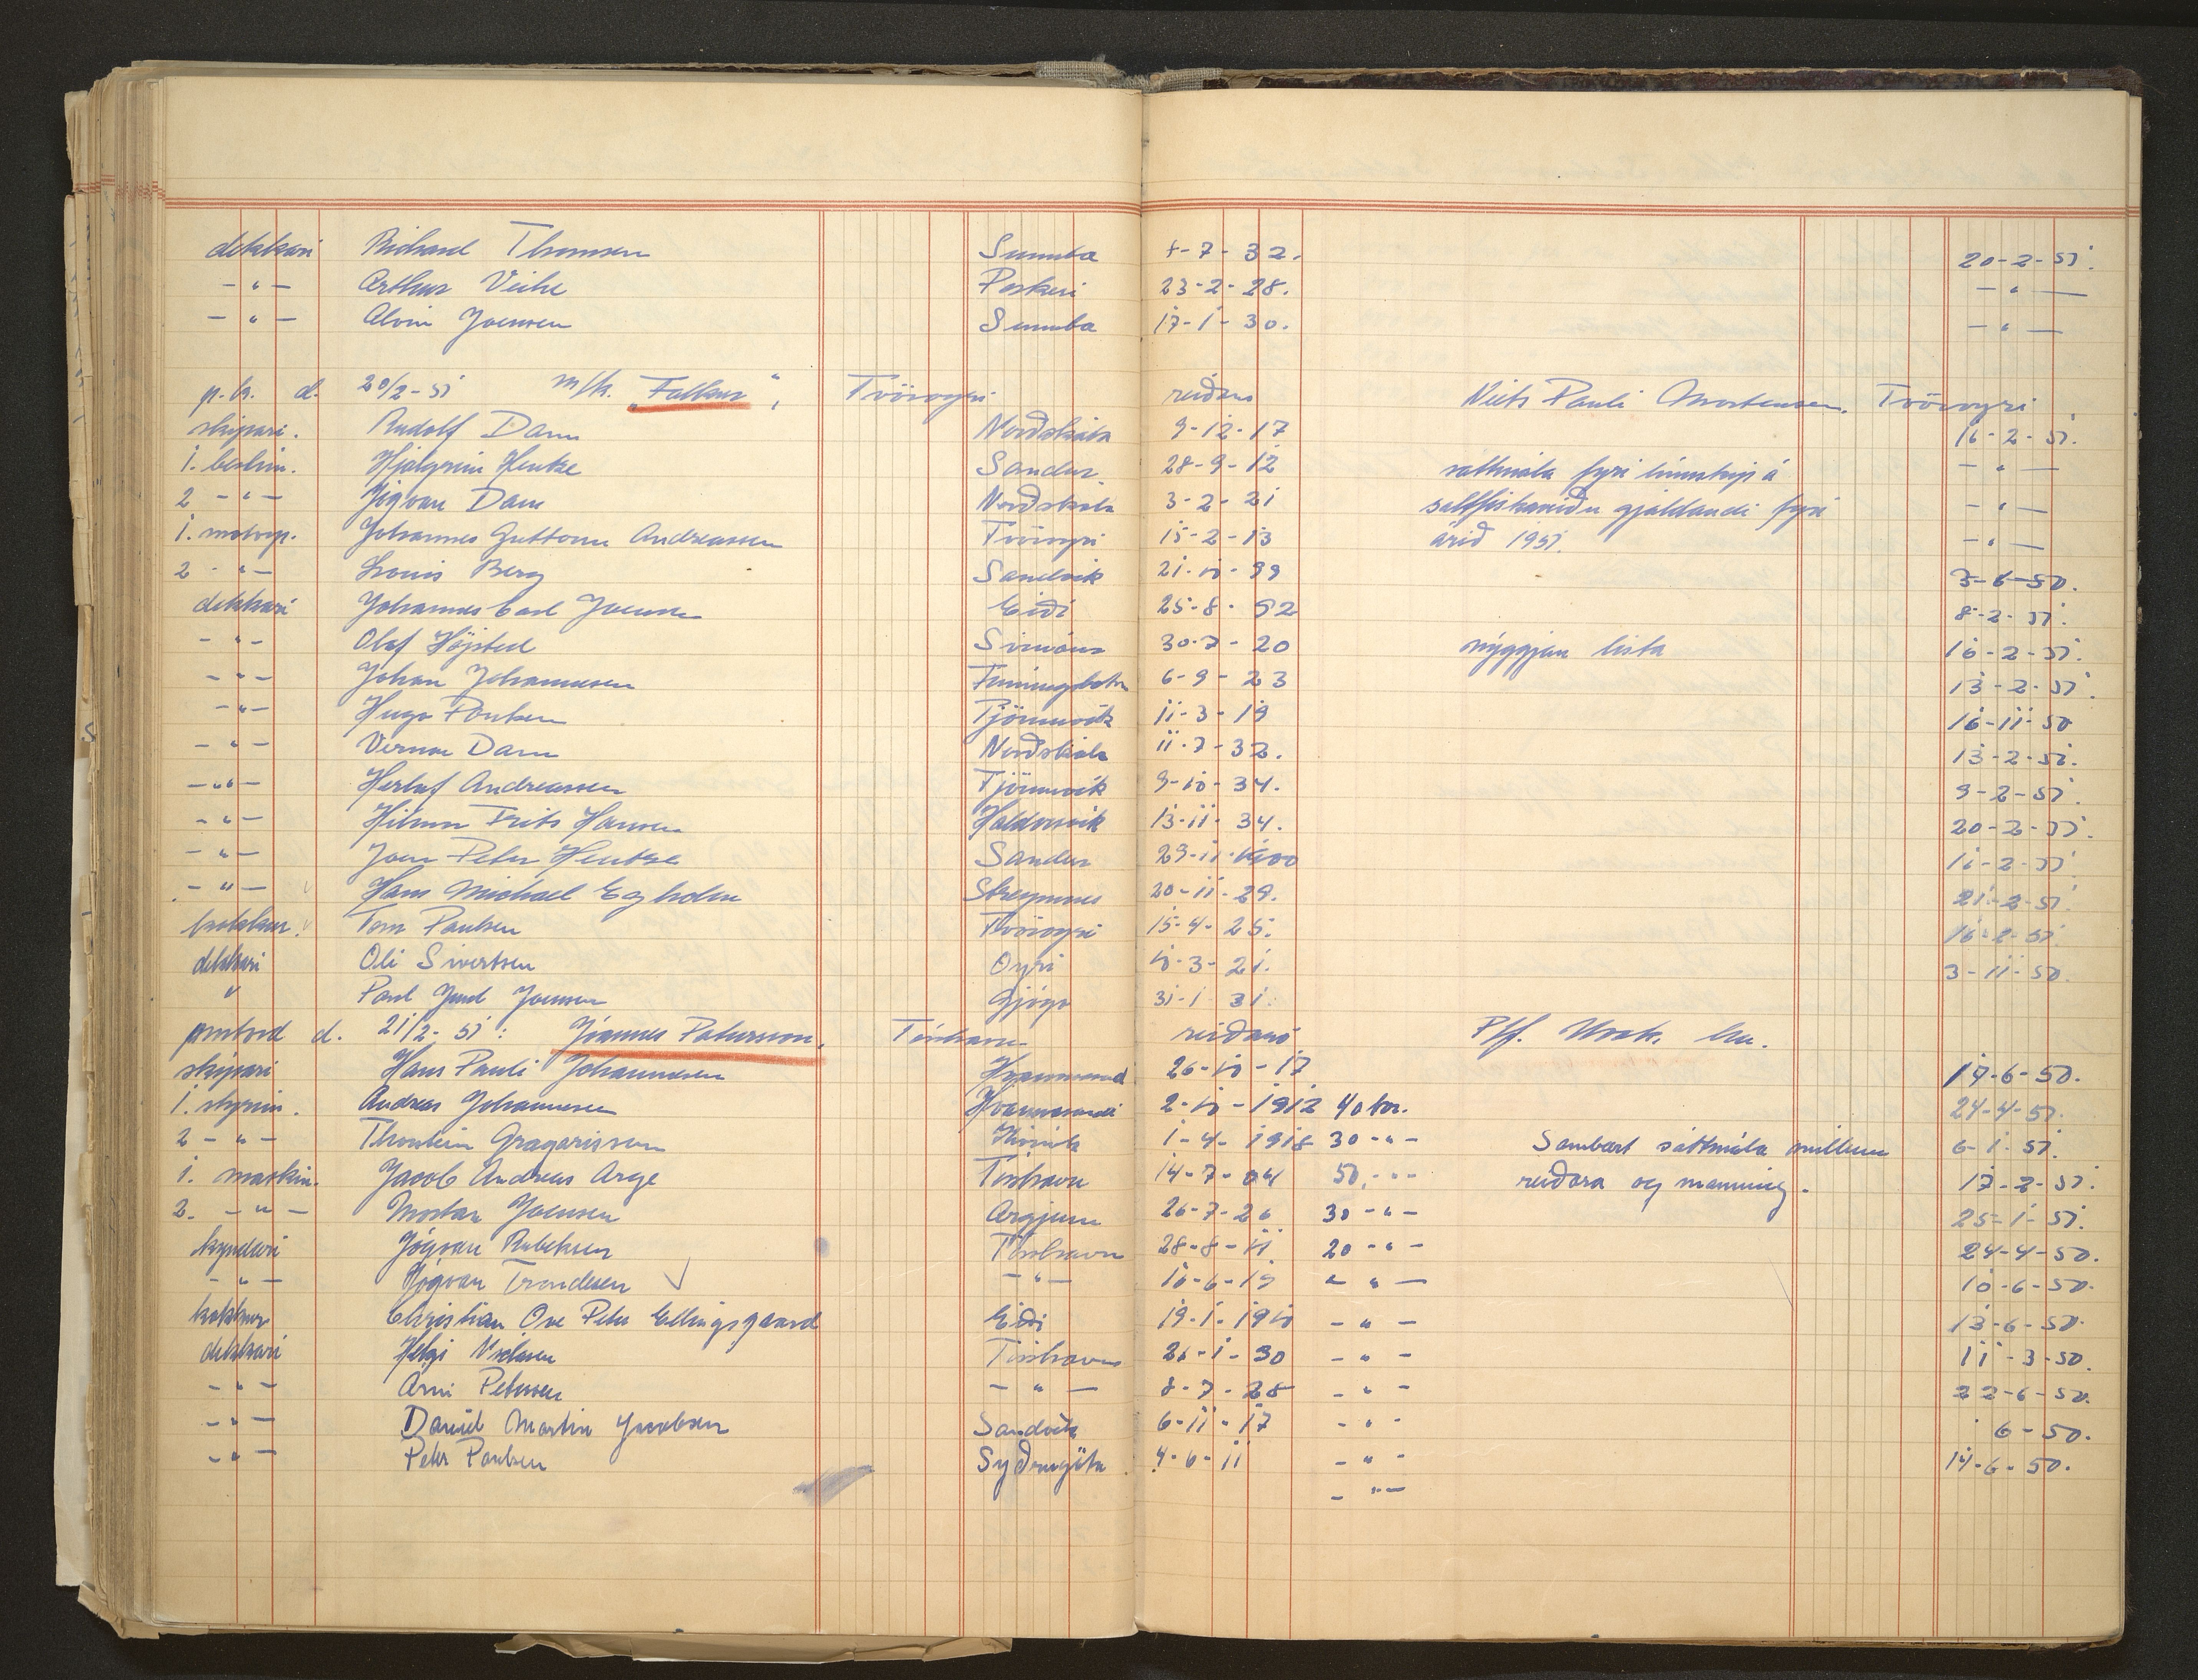 dekkari Richard Thomsen Sumba 4-7-32. 20-2-51.
-"- Arthur Veihe Porkeri 23-2-28. -"-
-"- Alvin Joensen Sumba 17-1-30. -"-
p.k. d. 20/2-51 m/k. "Falkur", Tvöroyri. reiðara Niels Pauli Mortensen. Tvöroyri
skipari. Rudolf Dam Norðskála 9-12-17 16-2-51.
1. bestm. Hjalgrim Hentze Sandur. 28-9-12 sáttmála fyri línuskip á -"-
2 -"- Jógvan Dam Norðskála 3-2-21 saltfiskaveiðu gjaldandi fyri -"-
1. motorp. Johannes Guttorm Andreassen Tvöroyri 15-2-13 árið 1951. -"-
2 -"- Louis Berg Sandvik 21-10-99 3-6-50.
dekkari Johannes Carl Joensen Eiði 25-8-92 8-2-51.
-"- Olaf Højsted Svinoy 30-7-20 nýggjan lista 16-2-51.
-"- Johan Johannesen Funningsbotn 6-9-23 13-2-51.
-"- Hugo Poulsen Tjörnuvik 11-3-19 16-11-50
-"- Verner Dam Norðskála 11-7-32. 13-2-51.
-"- Herluf Andreassen Tjörnuvik 9-10-34. 9-2-51.
-"- Hilmar Frits Hansen Haldorsvik 13-11-34. 20-2-51.
-"- Joen Peter Hentze Sandur 29-11-1900 16-2-51.
-"- Hans Michael Egholm Streymnes 20-11-29. 21-2-51.
kokkur. Tom Paulsen Tvöroyri 15-4-25. 16-2-51.
dekkari Oli Sivertsen Oyri 10-3-21. 3-11-50.
Paul Juul Joensen Gjógv 31-1-31.
prstord d. 21/2-51: Jóannes Patursson, Tórshavn reiðarí P/f.
skipari Hans Pauli Johannesen Hvannasund 26-10-17 17-6-50.
1. stýrim. Andreas Johannesen Hvannasundi 2-10-1912 40 kr. 24-4-51.
2 -"- Thorstein Gregorissen Kvivik 1-4-1918 30 -"- Sambært sáttmála millum 6-1-51.
1. maskin. Jacob Andreas Arge Tórshavn 14-7-04 50. -"- reiðara og manning. 17-2-51.
2. -"- Morten Joensen Argjum 26-7-26 30 -"- 25-1-51.
kyndari Jógvan Rubeksen Tórshavn 28-8-11 20 -"- 24-4-50.
-"- Jógvan Trondesen -"- 10-6-19 -"- 10-6-50.
kokkur Christian Ove Peter Ellingsgaard Eiði 19-1-1910 -"- 13-6-50.
dekkari Helgi Nielsen Tórshavn 26-1-30 -"- 11-3-50.
-"- Arni Petersen -"- 8-7-28 -"- 22-6-50.
-"- Daniel Martin Jacobsen Sandvik 6-11-17 -"- 6-50.
-"- Peter Poulsen Syðrugötu 4-6-11 -"- 14-6-50.
-"-